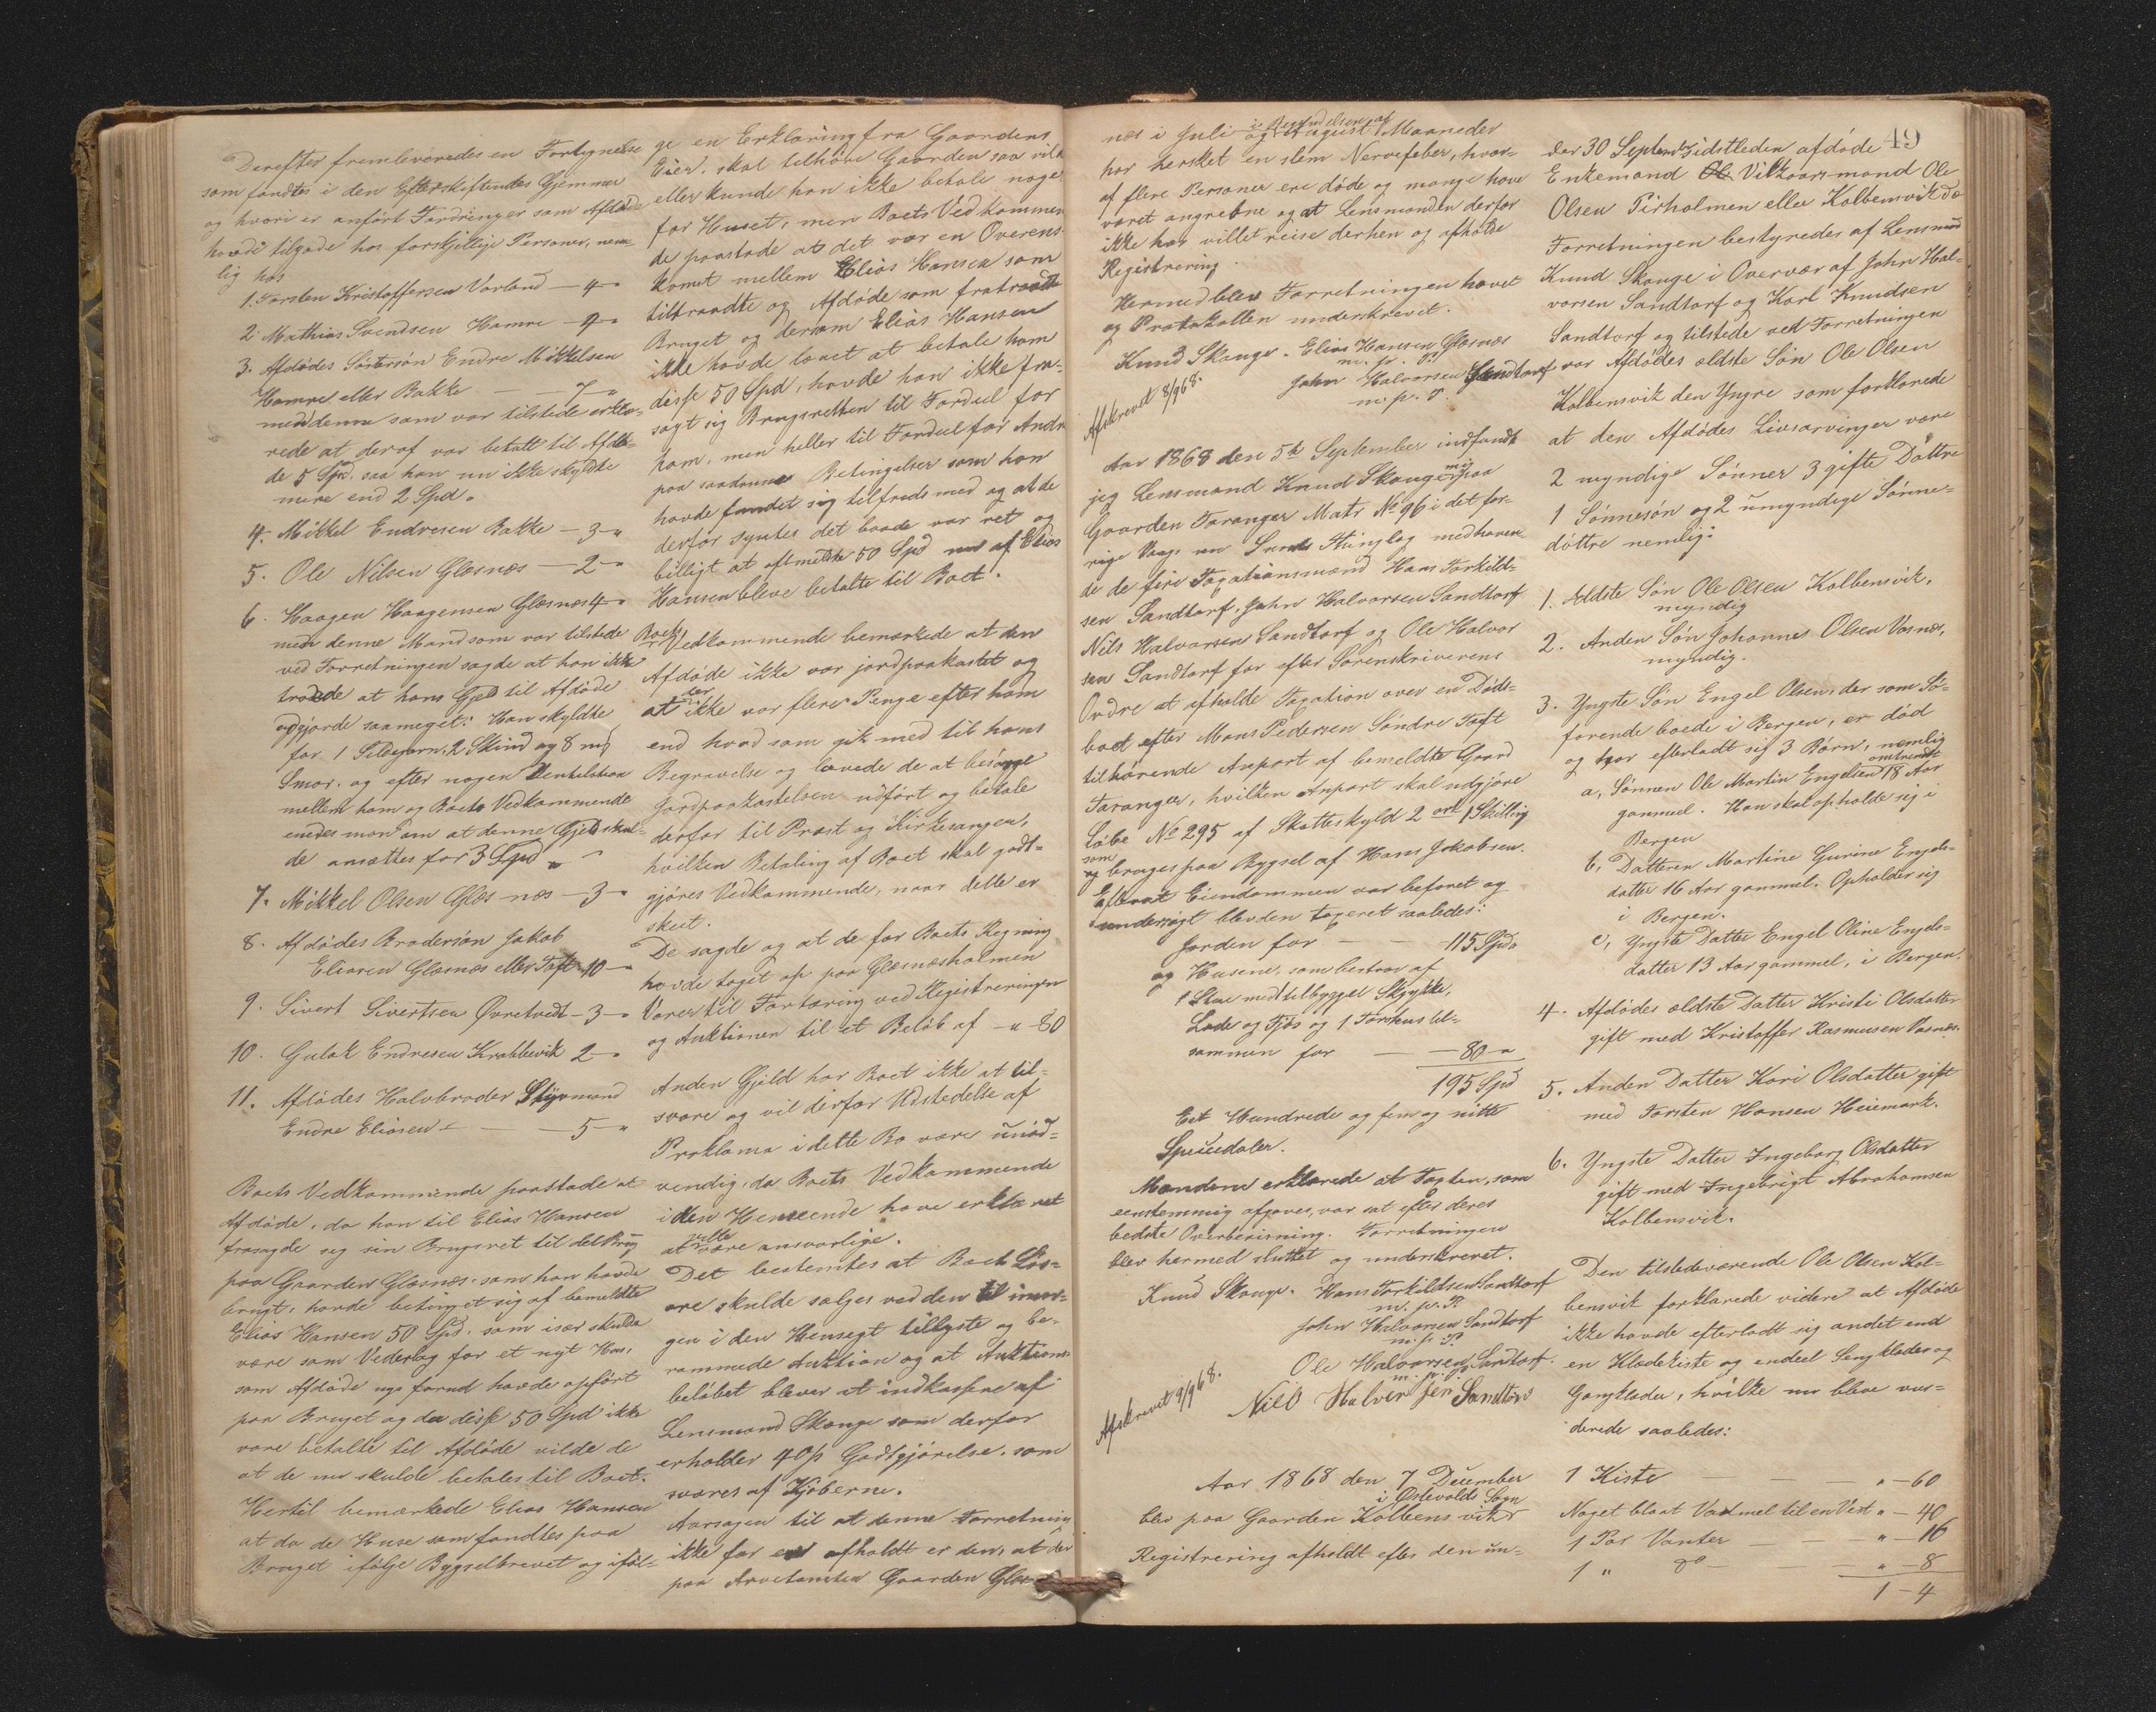 Derefter fremleveredes en Fortegnelse
som fandtes i den Efterskiftendes Gjemmer
og hvori er anført Fordringer som Afdøde
havde tilgode hos forskjellige Personer, nem-
lig hos
1. Torsten Kristoffersen Vorland — 4 "
2. Mathias Svendsen Hamre — 9 "
3. Afdødes Søstersøn Endre Mikkelsen
Hamre eller Bakke — 7 "
med denne som var tilstede erklæ-
rede at deraf var betalt til Afdø-
de 5 Spd. saa han nu ikke skyldte
mere end 2 Spd.
4. Mikkel Endresen Bakke — 3 "
5. Ole Nilsen Glæsnæs — 2 "
6. Haagen Haagensen Glæsnæs 4 "
men denne Mand som var tilstede
ved Forretningen sagde at han ikke
troede at hans Gjeld til Afdøde
udgjorde saameget: Han skyldte
for 1 Sildegarn, 2 Skind og 8 mrk
Smør. og efter nogen
mellem ham og Boets Vedkommende
enedes man om at denne Gjeld skul-
de ansættes for 3 Spd "
7. Mikkel Olsen Glæs-næs — 3 "
8. Afdødes Brodersøn Jakob
Eliasen Glæsnæs eller Toft 10 "
9. Sivert Sivertsen Øvretvedt — 3 "
10. Gulak Endresen Krabbevik 2 "
11. Afdødes Halvbroder Styrmand
Endre Eliasen — 5 "
Boets Vedkommende paastode at
Afdøde, da han til Elias Hansen
frasagde sig sin Brugsret til det Brug
paa Gaarden Glæsnæs som han havde
brugt, havde betinget sig af bemeldte
Elias Hansen 50 Spd. som især skulde
være som Vederlag for et nyt Hus,
som Afdøde nys forud havde opført
paa Bruget og da disse 50 Spd ikke
vare betalte til Afdøde vilde de
at de nu skulde betales til Boet.
Hertil bemærkede Elias Hansen
at da de Huse som fandtes paa
Bruget ifølge Bygselbrevet og iføl-
ge en Erklæring fra Gaardens
Eier, skal tilhøre Gaarden saa vilde
eller kunde han ikke betale noget
for Huset, men Boets Vedkommen
de paastode at det var en Overens-
komst mellem Elias Hansen som
tiltraadte og Afdøde som fratraadte
Bruget og dersom Elias Hansen
ikke havde lovet at betale ham
disse 50 Spd, havde han ikke fra-
sagt sig Brugsretten til Fordel for
ham, men heller til Fordel for Andre
paa saadanne Betingelser som han
havde fundet sig tilfreds med og at de
derfor syntes det baade var ret og
billigt at oftmeldte 50 Spd nu af Elias
Hansen bleve betalte til Boet.
Boets Vedkommende bemærkede at den
Afdøde ikke var jordpaakastet og
at der ikke var flere Penge efter ham
end hvad som gik med til hans
Begravelse og lovede de at besørge
Jordpaakastelsen udført og betale
derfor til Præst og Kirkesanger,
hvilken Betaling af Boet skal godt-
gjøres Vedkommende, naar dette er
skeet.
De sagde og at de for Boets Regning
havde taget op paa Glæsnæsholmen
Varer til Fortæring ved Registreringen
og Auktionen til et Beløb af — " — 80
Anden Gjeld har Boet ikke at til-
svare og vil derfor Udstedelse af
Proklama i dette Bo være unød-
vendig, da Boets Vedkommende
i den Henseende have erklæret
at ville være ansvarlige.
Det bestemtes at Boets Løs-
øre skulde sælges ved den til imor-
gen i den Hensegt tillyste og be-
rammede Auktion og at Auktions-
beløbet bliver at indkassere af
Lensmand Skauge som derfor
erholder 4 op Godtgjørelse, som
svares af Kjøberne.
Aarsagen til at denne Forretning
ikke før er afholdt er den, at der
paa Arvetomten Gaarden Glæs-
49
næs i Juli og i Begyndelsen af August Maaneder
har hersket en slem Nervefeber, hvor-
af flere Personer ere døde og mange have
været angrebne og at Lensmanden derfor
ikke har villet reise derhen og afholde
Registrering.
Hermed blev Forretningen hævet
og Protokollen underskrevet.
Knud Skauge. Elias Hansen Glæsnæs
m. p. P.
John Halvorsen Sandtorf
m. p. P.
Afskrevet 8/9 68.
Aar 1868 den 5te September indfandt
jeg Lensmand Knud Skauge mig paa
Gaarden Taranger Matr No 96 i det for-
rige Vaags nu Sunds Thinglag medhaven
de de fire Taxationsmænd Hans Torkild-
sen Sandtorf, John Halvorsen Sandtorf
Nils Halvorsen Sandtorf og Ole Halvor
sen Sandtorf for efter Sorenskriverens
Ordre at afholde Taxation over en Døds-
boet efter Mons Pedersen Søndre Toft
tilhørende Anpart af bemeldte Gaard
Taranger, hvilken Anpart skal udgjøre
Løbe No 295 af Skatteskyld 2 ort 1 Skilling
og som bruges paa Bygsel af Hans Jakobsen.
Efterat Eiendommen var befaret og
undersøgt blev den taxeret saaledes:
Jorden for — — 115 Spd
og Husene, som bestaar af
1 Stue med tilbygget Skykke,
Lade og Fjøs og 1 Tørhus til-
sammen for — — 80 "
195 Spd
Eet Hundrede og fem og nitti
Speciedaler.
Mændene erklærede at Taxten, som
eenstemmig afgaves, var sat efter deres
bedste Overbevisning. Forretningen
blev hermed sluttet og underskrevet.
Knud Skauge. Hans Torkildsen Sandtorf
m. p. P.
John Halvorsen Sandtorf
m. p. P.
Ole Halvorsen Sandtorf.
m. p. P.
Nils Halvorsen Sandtorv
Afskrevet 9/9 68.
Aar 1868 den 7 December
blev paa Gaarden Kolbensvik i Østevolds Sogn
Registrering afholdt efter den un-
der 30 September sidstleden afdøde
Enkemand Vilkaarsmand Ole
Olsen Pirholmen eller Kolbensvik do
Forretningen bestyredes af Lensmd
Knud Skauge i Overvær af John Hal-
vorsen Sandtorf og Karl Knudsen
Sandtorf og tilstede ved Forretningen
var Afdødes ældste Søn Ole Olsen
Kolbensvik den Yngre som forklarede
at den Afdødes Livsarvinger vare
2 myndige Sønner 3 gifte Døttre
1 Sønnesøn og 2 umyndige Sønne-
døttre nemlig:
1. Ældste Søn Ole Olsen Kolbensvik,
myndig
2. Anden Søn Johannes Olsen Vasnes,
myndig.
3. Yngste Søn Engel Olsen, der som Sø-
farende boede i Bergen, er død
og har efterladt sig 3 Børn, nemlig
a, Sønnen Ole Martin Engelsen omtrent 18 Aar
gammel. Han skal opholde sig i
Bergen
b, Datteren Martine Gurine Engels-
datter 16 Aar gammel. Opholder sig
i Bergen.
c, Yngste Datter Engel Oline Engels-
datter 13 Aar gammel, i Bergen.
4. Afdødes ældste Datter Kristi Olsdatter
gift med Kristoffer Rasmusen Vasnes.
5. Anden Datter Kari Olsdatter gift
med Torsten Hansen Heiemark.
6. Yngste Datter Ingeborg Olsdatter
gift med Ingebrigt Abrahamsen
Kolbensvik.
Den tilstedeværende Ole Olsen Kol-
bensvik forklarede videre at Afdøde
ikke havde efterladt sig andet end
en Klædekiste og endeel Sengklæder og
Gangklæder, hvilke nu bleve vur-
derede saaledes:
1 Kiste — — — " — 60
Noget blaat Vadmel til en Vest " — 40
1 Par Vanter — " — 16
1 " do — " — 8
1 — 4